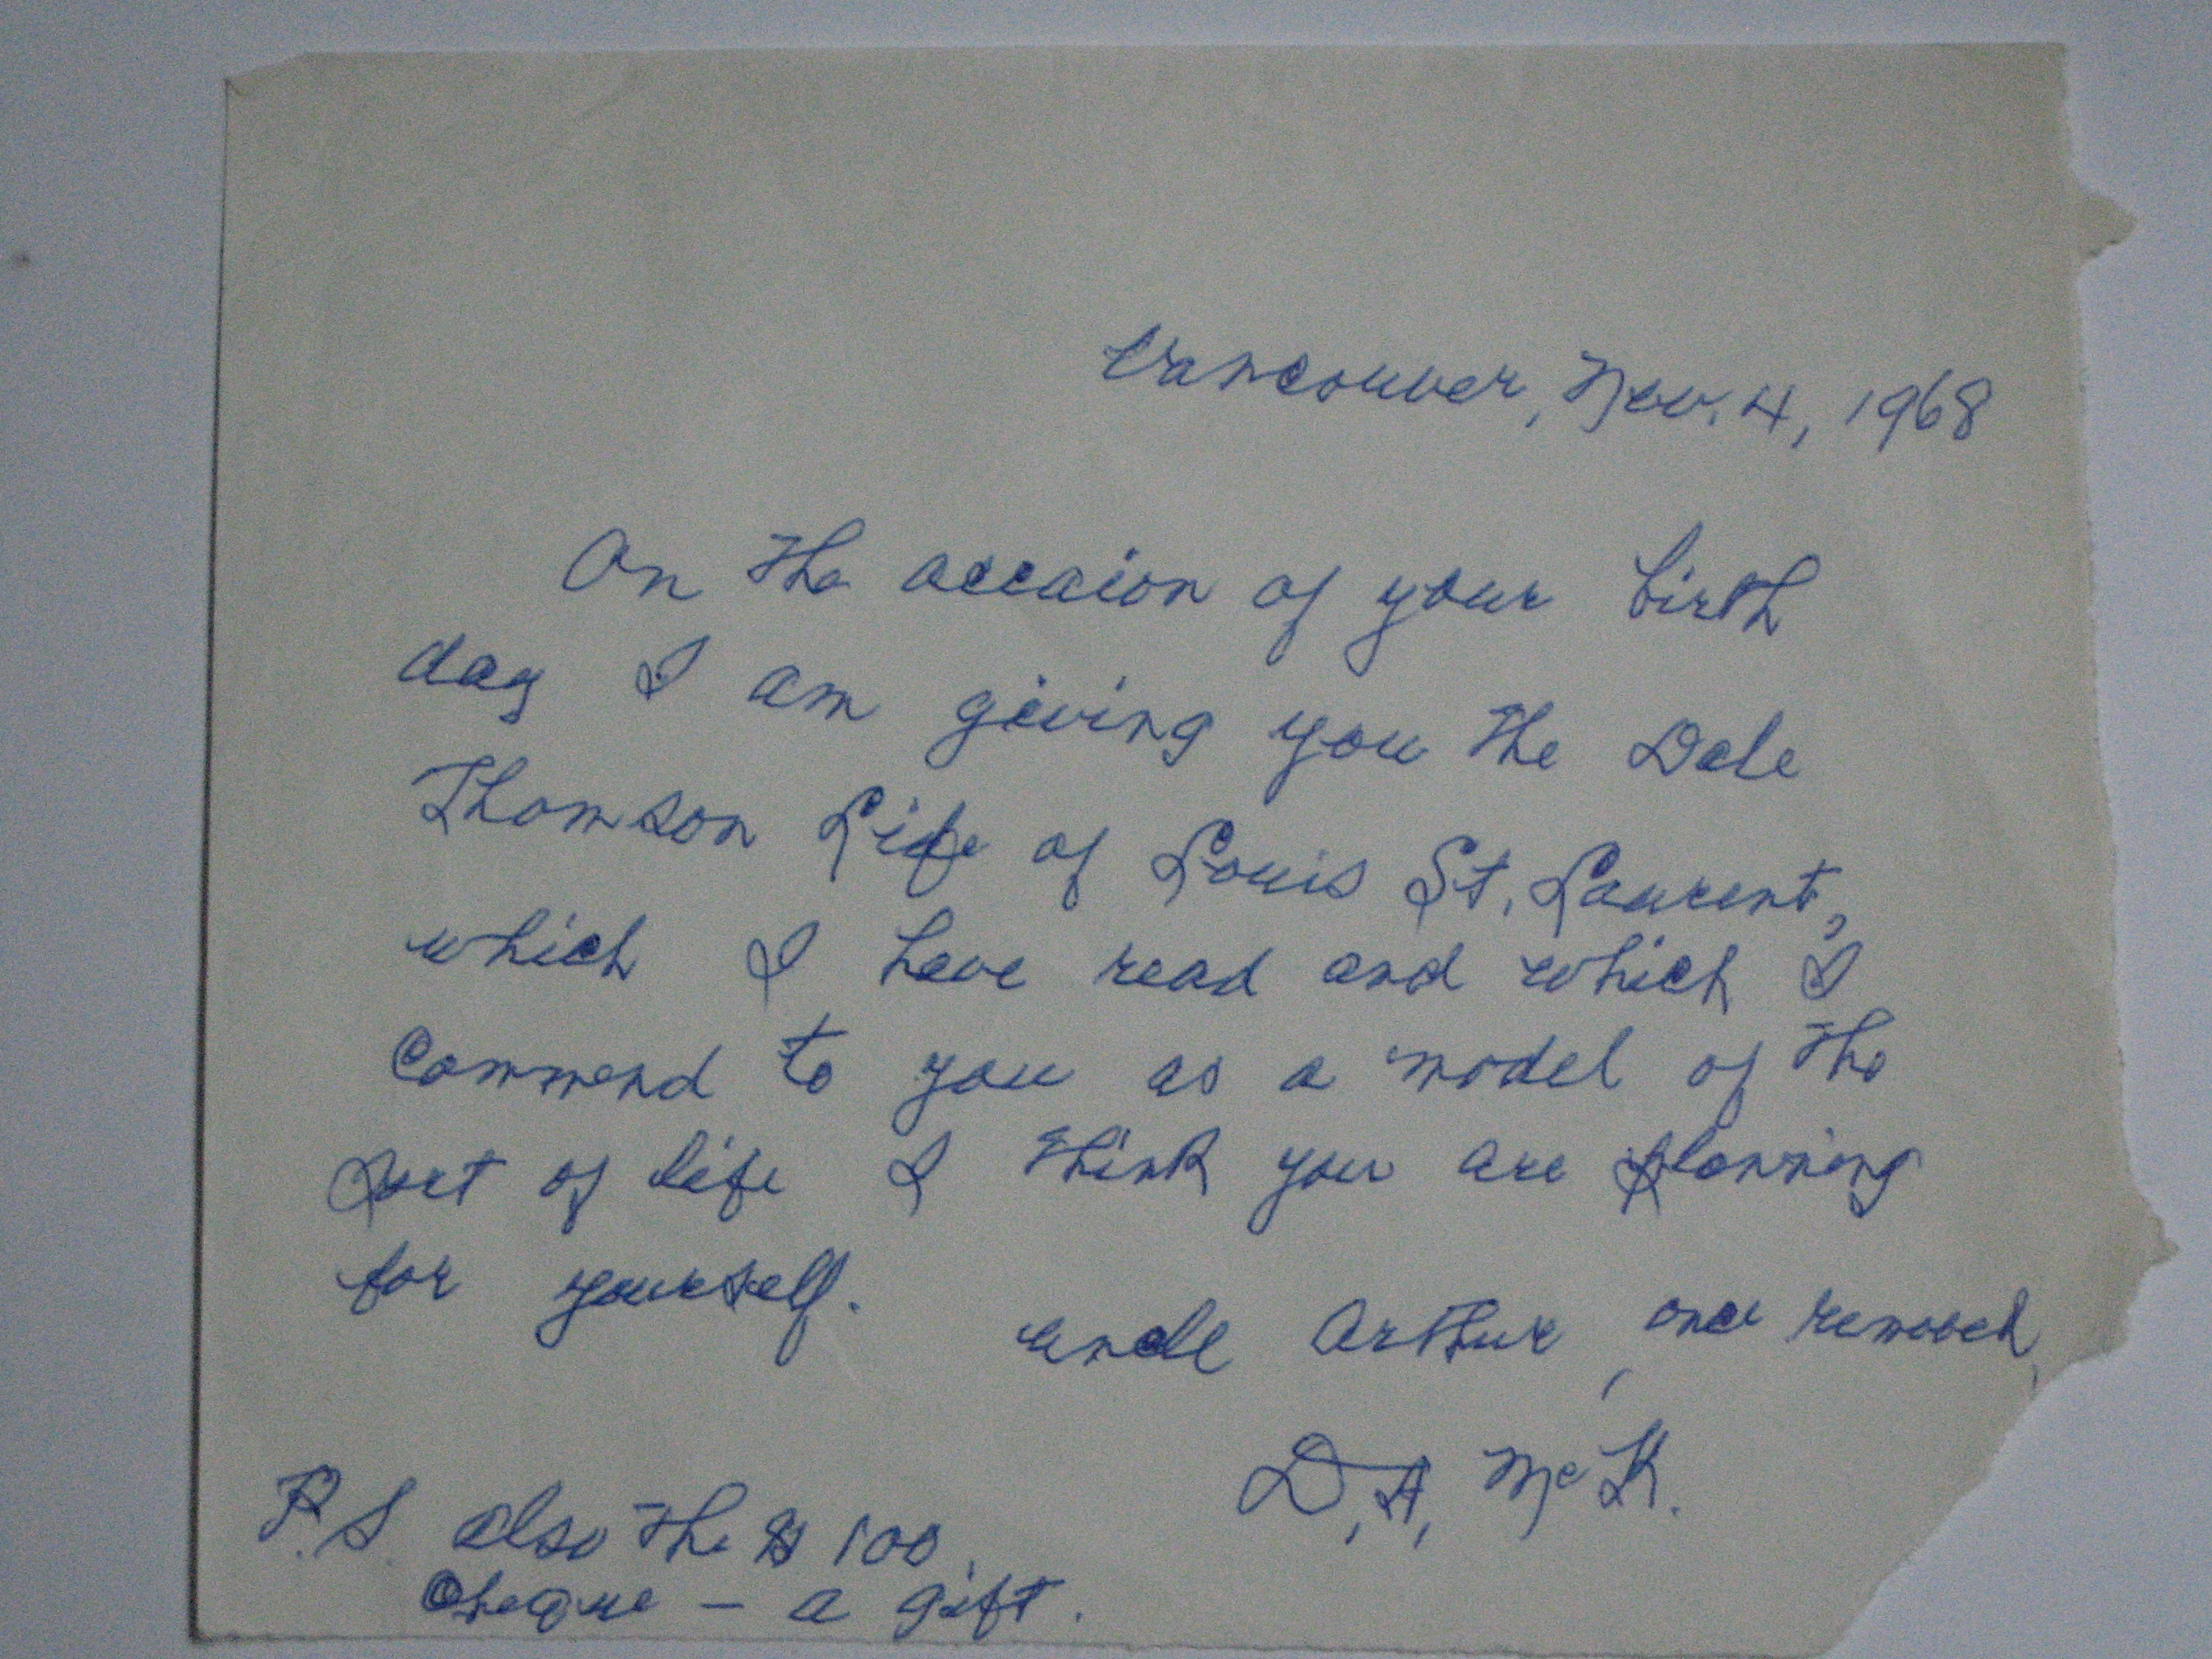 Vancouver, Nov. 4, 1968
On the occaion of your birth
day I am giving you the Dale
Thomson Life of Louis St. Laurent,
which I have read and which I
commend to you as a model of the
sort of life I think you are planning
for yourself.
uncle Arthur, once removed,
D. A. McK.
P.S. also the $100
cheque – a gift.